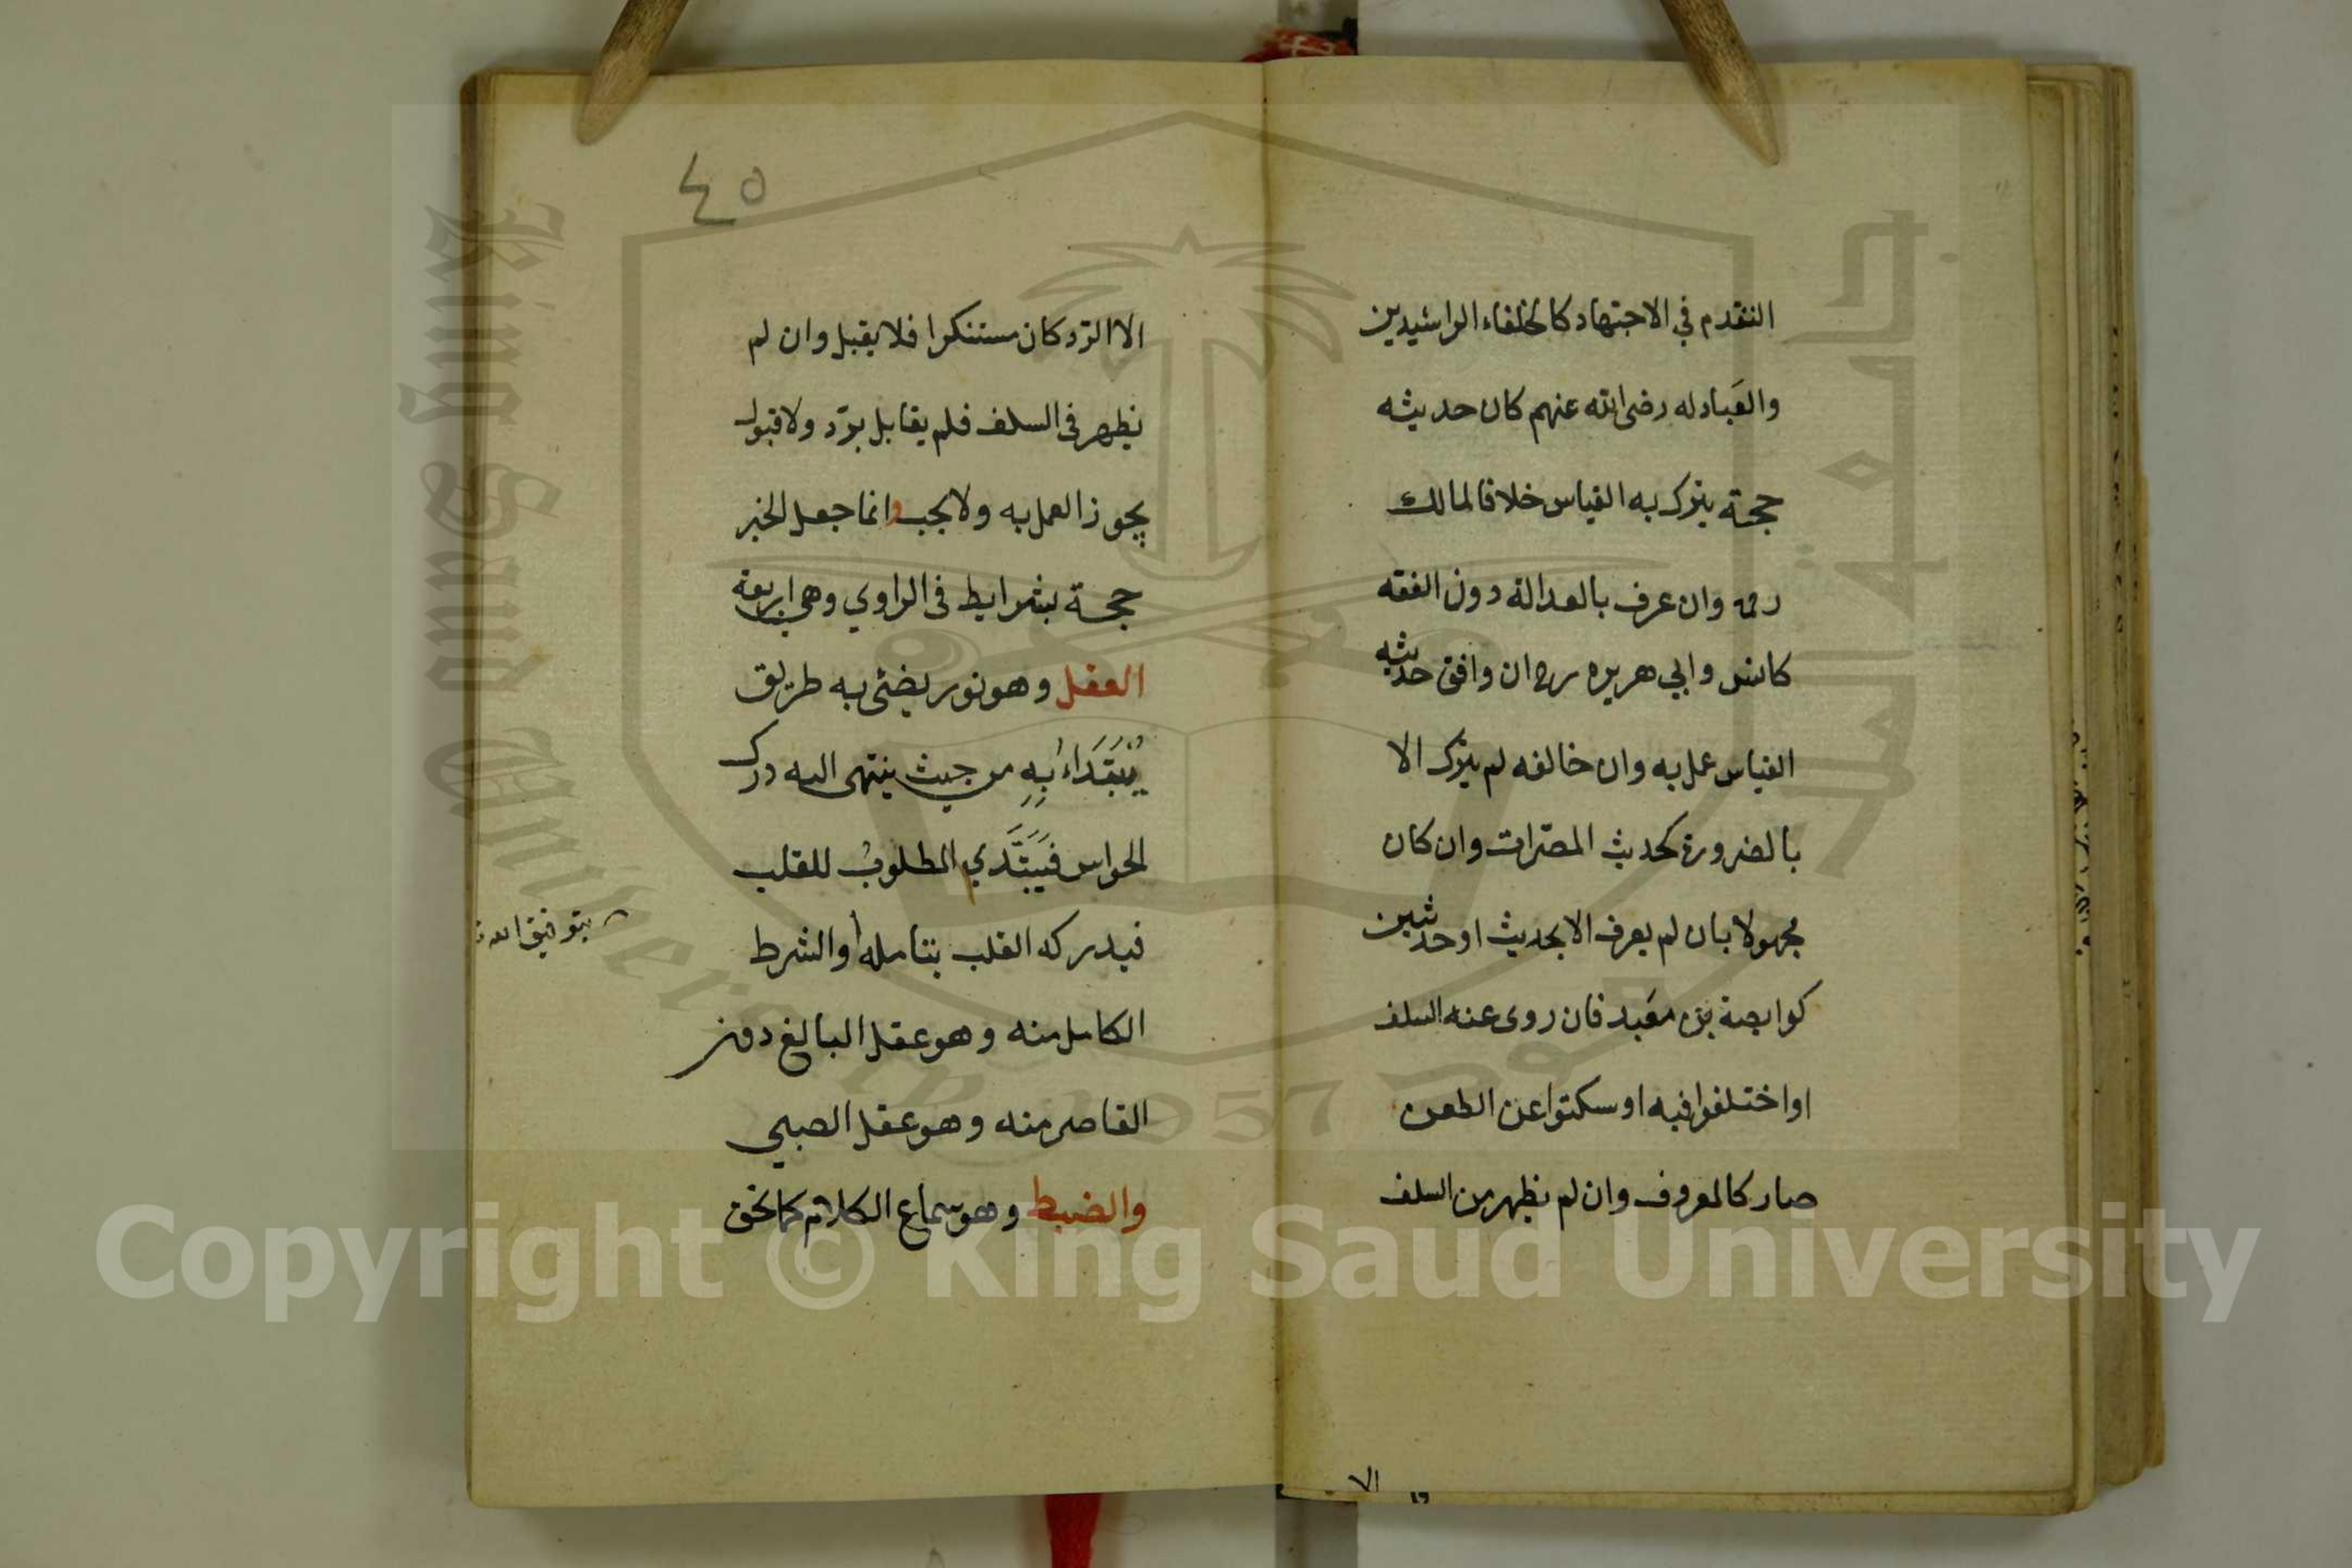 التقدم في الاجتهاد كالخلفاء الراشيدين
والعَبادله رضى الله عنهم كان حديثه
حجة يترك به القياس خلافا لمالك
رحمه وان عرف بالعدالة دون الفقه
كانس وابي هريره رح ان وافق حديثه
القياس عمل به وان خالفه لم يترك الا
بالضرورة كحديث المصّرات وان كان
مجهولا بان لم يعرف الا بحديث او حديثين
كوابصة بن معَبد فان روى عنه السلف
او اختلفوا فيه او سكتوا عن الطعن
صار كالمعروف وان لم يظهر من السلف
الا
٤٥
الا الرّد كان مستنكرا فلا يقبل وان لم
يظهر فى السلف فلم يقابل بردّ ولا قبول
يجوز العمل به ولا يجب وانما جعل الخبر
حجة بشرايط فى الراوي وهي اربعة
العقل وهو نور يضئى به طريق
يُبَتَدَاءُ بِهِ من حيث ينتهى اليه درك
الحواس فَيَبَتَّدي المطلوبُ للقلب
فيدركه القلب بتامله والشرط
بتوفيق الله
الكامل منه وهو عقل البالغ دون
القاصر منه وهو عقل الصبي
والضبط وهو سماع الكلام كما يحق
Copyright © King Saud University
King Saud University
جامعة الملك سعود
1957